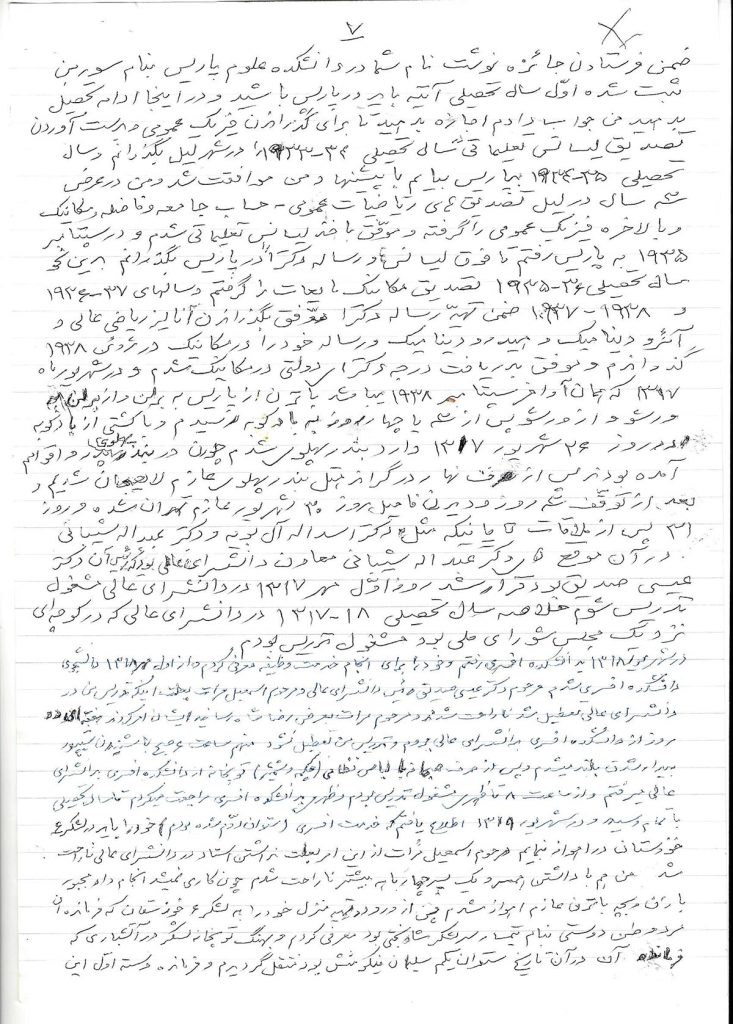 ۷
ضمن فرستادن جائزه نوشت نام شما در دانشکده علوم پاریس بنام سوربن
ثبت شده اوّل سال تحصیلی آتیه باید در پاریس باشید و در اینجا ادامه تحصیل
بدهید من جواب دادم اجازه بدهید تا برای گذراندن فیزیک عمومی و بدست آوردن
تصدیق لیسانس تعلیماتی سال تحصیلی ۳۴-۱۹۳۳ را در شهر لیل بگذرانم و سال
تحصیلی ۳۵-۱۹۳۴ بپاریس بیایم با پیشنهاد من موافقت شد و من در عرض
سه سال در لیل تصدیق های ریاضیات عمومی - حساب جامعه و فاضله و مکانیک
و بالاخره فیزیک عمومی را گرفته و موفّق باخذ لیسانس تعلیماتی شدم و در سپتامبر
۱۹۳۵ به پاریس رفتم تا فوق لیسانس و رساله دکترا را در پاریس بگذرانم بدین نحو
سال تحصیلی ۳۶-۱۹۳۵ تصدیق مکانیک مایعات را گرفتم و سالهای ۳۷-۱۹۳۶
و ۱۹۳۸-۱۹۳۷ ضمن تهیّه رساله دکترا موّفق بگذراندن آنالیز ریاضی عالی و
آئرودینامیک و هیدرودینامیک و رساله خود را در مکانیک در ژوئن ۱۹۳۸
گذراندم و موفق بدریافت درجه دکترای دولتی در مکانیک شدم و در شهریورماه
۱۳۱۷ که همان اواخر سپتامبر ۱۹۳۸ میباشد با ترن از پاریس به برلن و از برلن به
ورشو و از ورشو پس از سه یا چهار روز به بادکوبه رسیدم و با کشتی از بادکوبه
روز ۲۶ شهریور ۱۳۱۷ وارد بندر پهلوی شدم چون در بندر پهلوی پدر و اقوام
آمده بودند پس از صرف نهار در گراند هتل بندر پهلوی عازم لاهیجان شدیم و
بعد از توقف سه روز و دیدن فامیل روز ۳۰ شهریور عازم تهران شده و روز
۳۱ پس از ملاقات آقایانیکه مثل دکتر اسداله آل بویه و دکتر عبداله شیبانی
در آن موقع دکتر عبداله شیبانی معاون دانشسرای عالی بود که رئیس آن دکتر
عیسی صدیق بود قرار شد روز اوّل مهر ۱۳۱۷ در دانشسرای عالی مشغول
تدریس شوم خلاصه سال تحصیلی ۱۸-۱۳۱۷ در دانشسرای عالی که در کوچه‌ای
نزدیک مجلس شورای ملی بود مشغول تدریس بودم
در شهریور ۱۳۱۸ به دانشکده افسری رفتم و خود را برای انجام خدمت وظیفه معرفی کردم و از اول مهر ۱۳۱۸ دانشجوی
دانشکده افسری شدم مرحوم دکتر عیسی صدیق رئیس دانشسرای عالی و مرحوم اسمعیل مرآت بعلت اینکه تدریس من در
دانشسرای عالی تعطیل شد ناراحت شدند و مرحوم مرآت بعرض رضا شاه رسانید ایشان امر کردند هفته‌ای دو
روز از دانشکده افسری بدانشسرای عالی بروم و تدریس من تعطیل نشود منهم ساعت ۴ صبح با شنیدن شیپور
بیدار شدن بلند میشدم و پس از صرف صبحانه با لباس نظامی (چکمه و شمشیر) توپخانه از دانشکده افسری بدانشسرای
عالی میرفتم و از ساعت ۸ تا ظهر مشغول تدریس بودم و ظهر به دانشکده افسری مراجعت میکردم تا سال تحصیلی
باتمام رسید و در شهریور ۱۳۱۹ اطلاع یافتم که خدمت افسری (ستوان دوّم شده بودم) خود را باید در لشکر ۶
خوزستان در اهواز نمایم مرحوم اسمعیل مرآت از این امر بعلت نداشتن استاد در دانشسرای عالی ناراحت
شد من هم با داشتن همسر و یک پسر چهارماهه بیشتر ناراحت شدم چون کاری نمیشد انجام داد مجبور
با زن و بچه با ترن عازم اهواز شدم پس از ورود و تهیه منزل خود را به لشکر ۶ خوزستان که فرمانده آن
مرد وطن دوستی بنام تیمسار سرلشکر شاه‌بختی بود معرفی کردم و بهنگ توپخانه لشکر در آتشباری که
فرمانده آن در آن تاریخ ستوان یکم سلیمان نیکومنش بود منتقل گردیدم و فرمانده دسته اوّل این